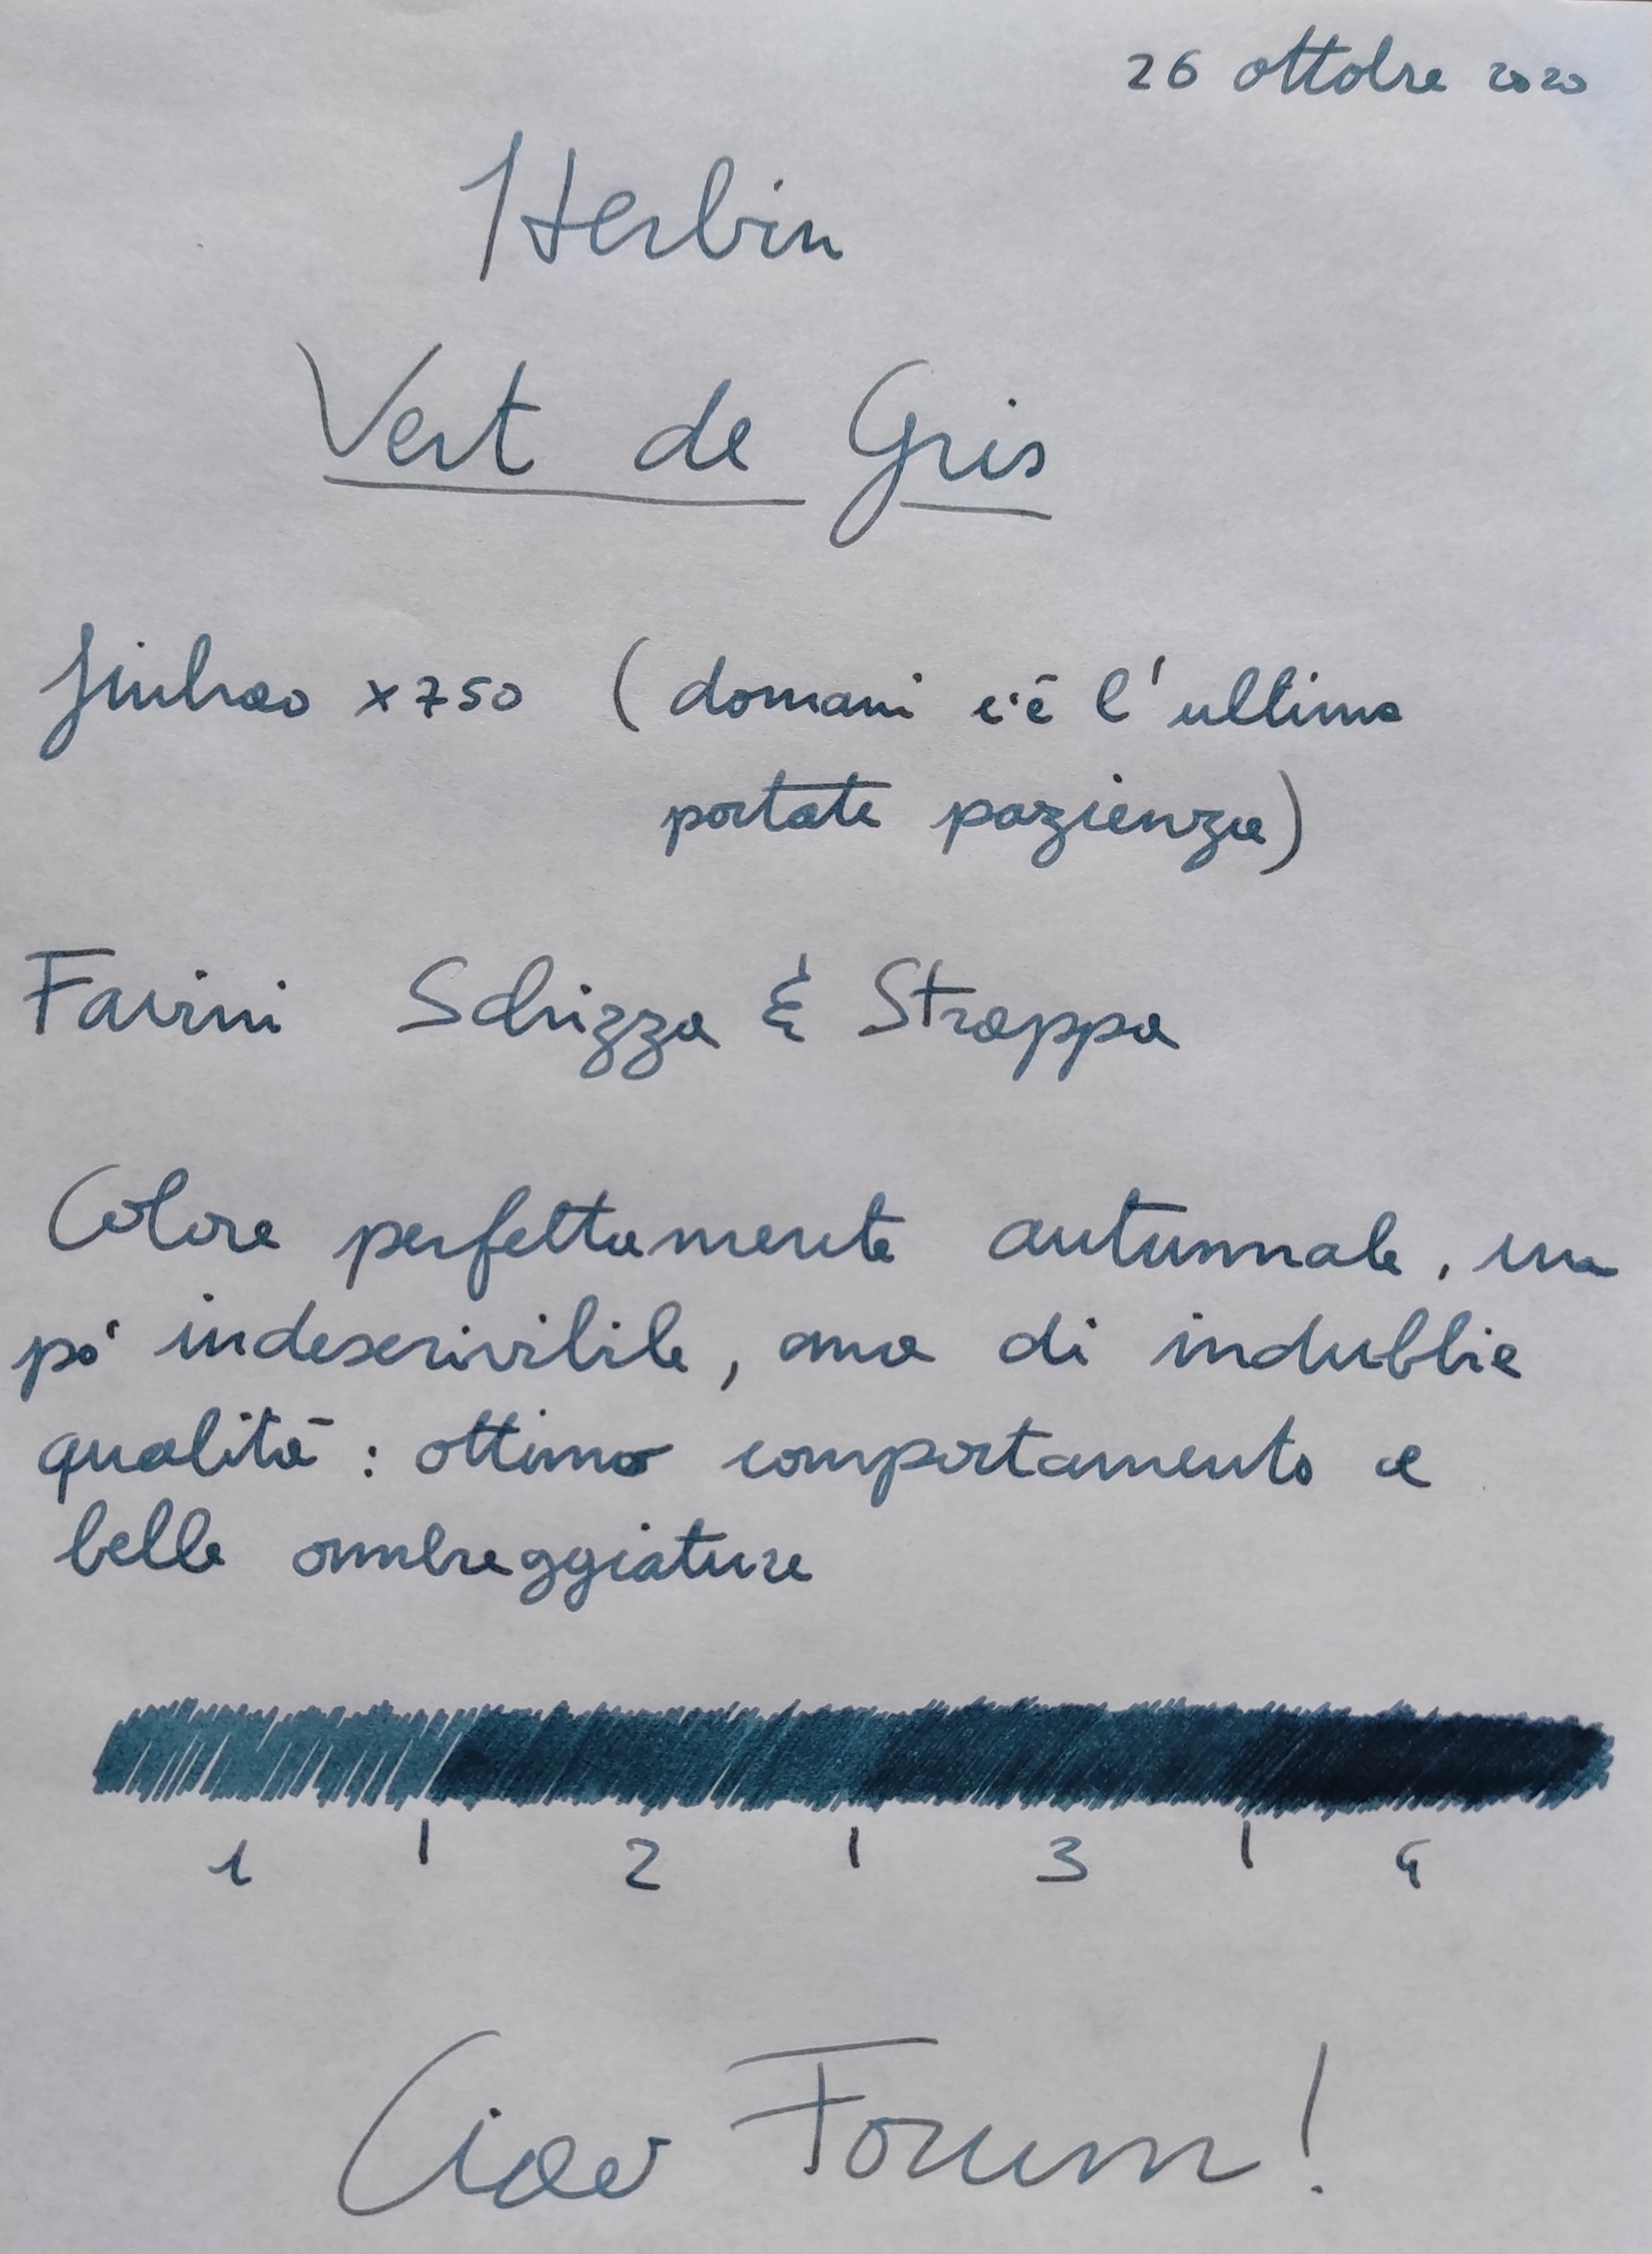 26 ottobre 2020
Herbin
Vert de Gris
Jinhao x750 (domani c'è l'ultima
portate pazienza)
Favini Schizza & Strappa
Colore perfettamente autunnale, un
po' indescrivibile, ma di indubbie
qualità: ottimo comportamento e
belle ombreggiature
1 | 2 | 3 | 4
Ciao Forum!